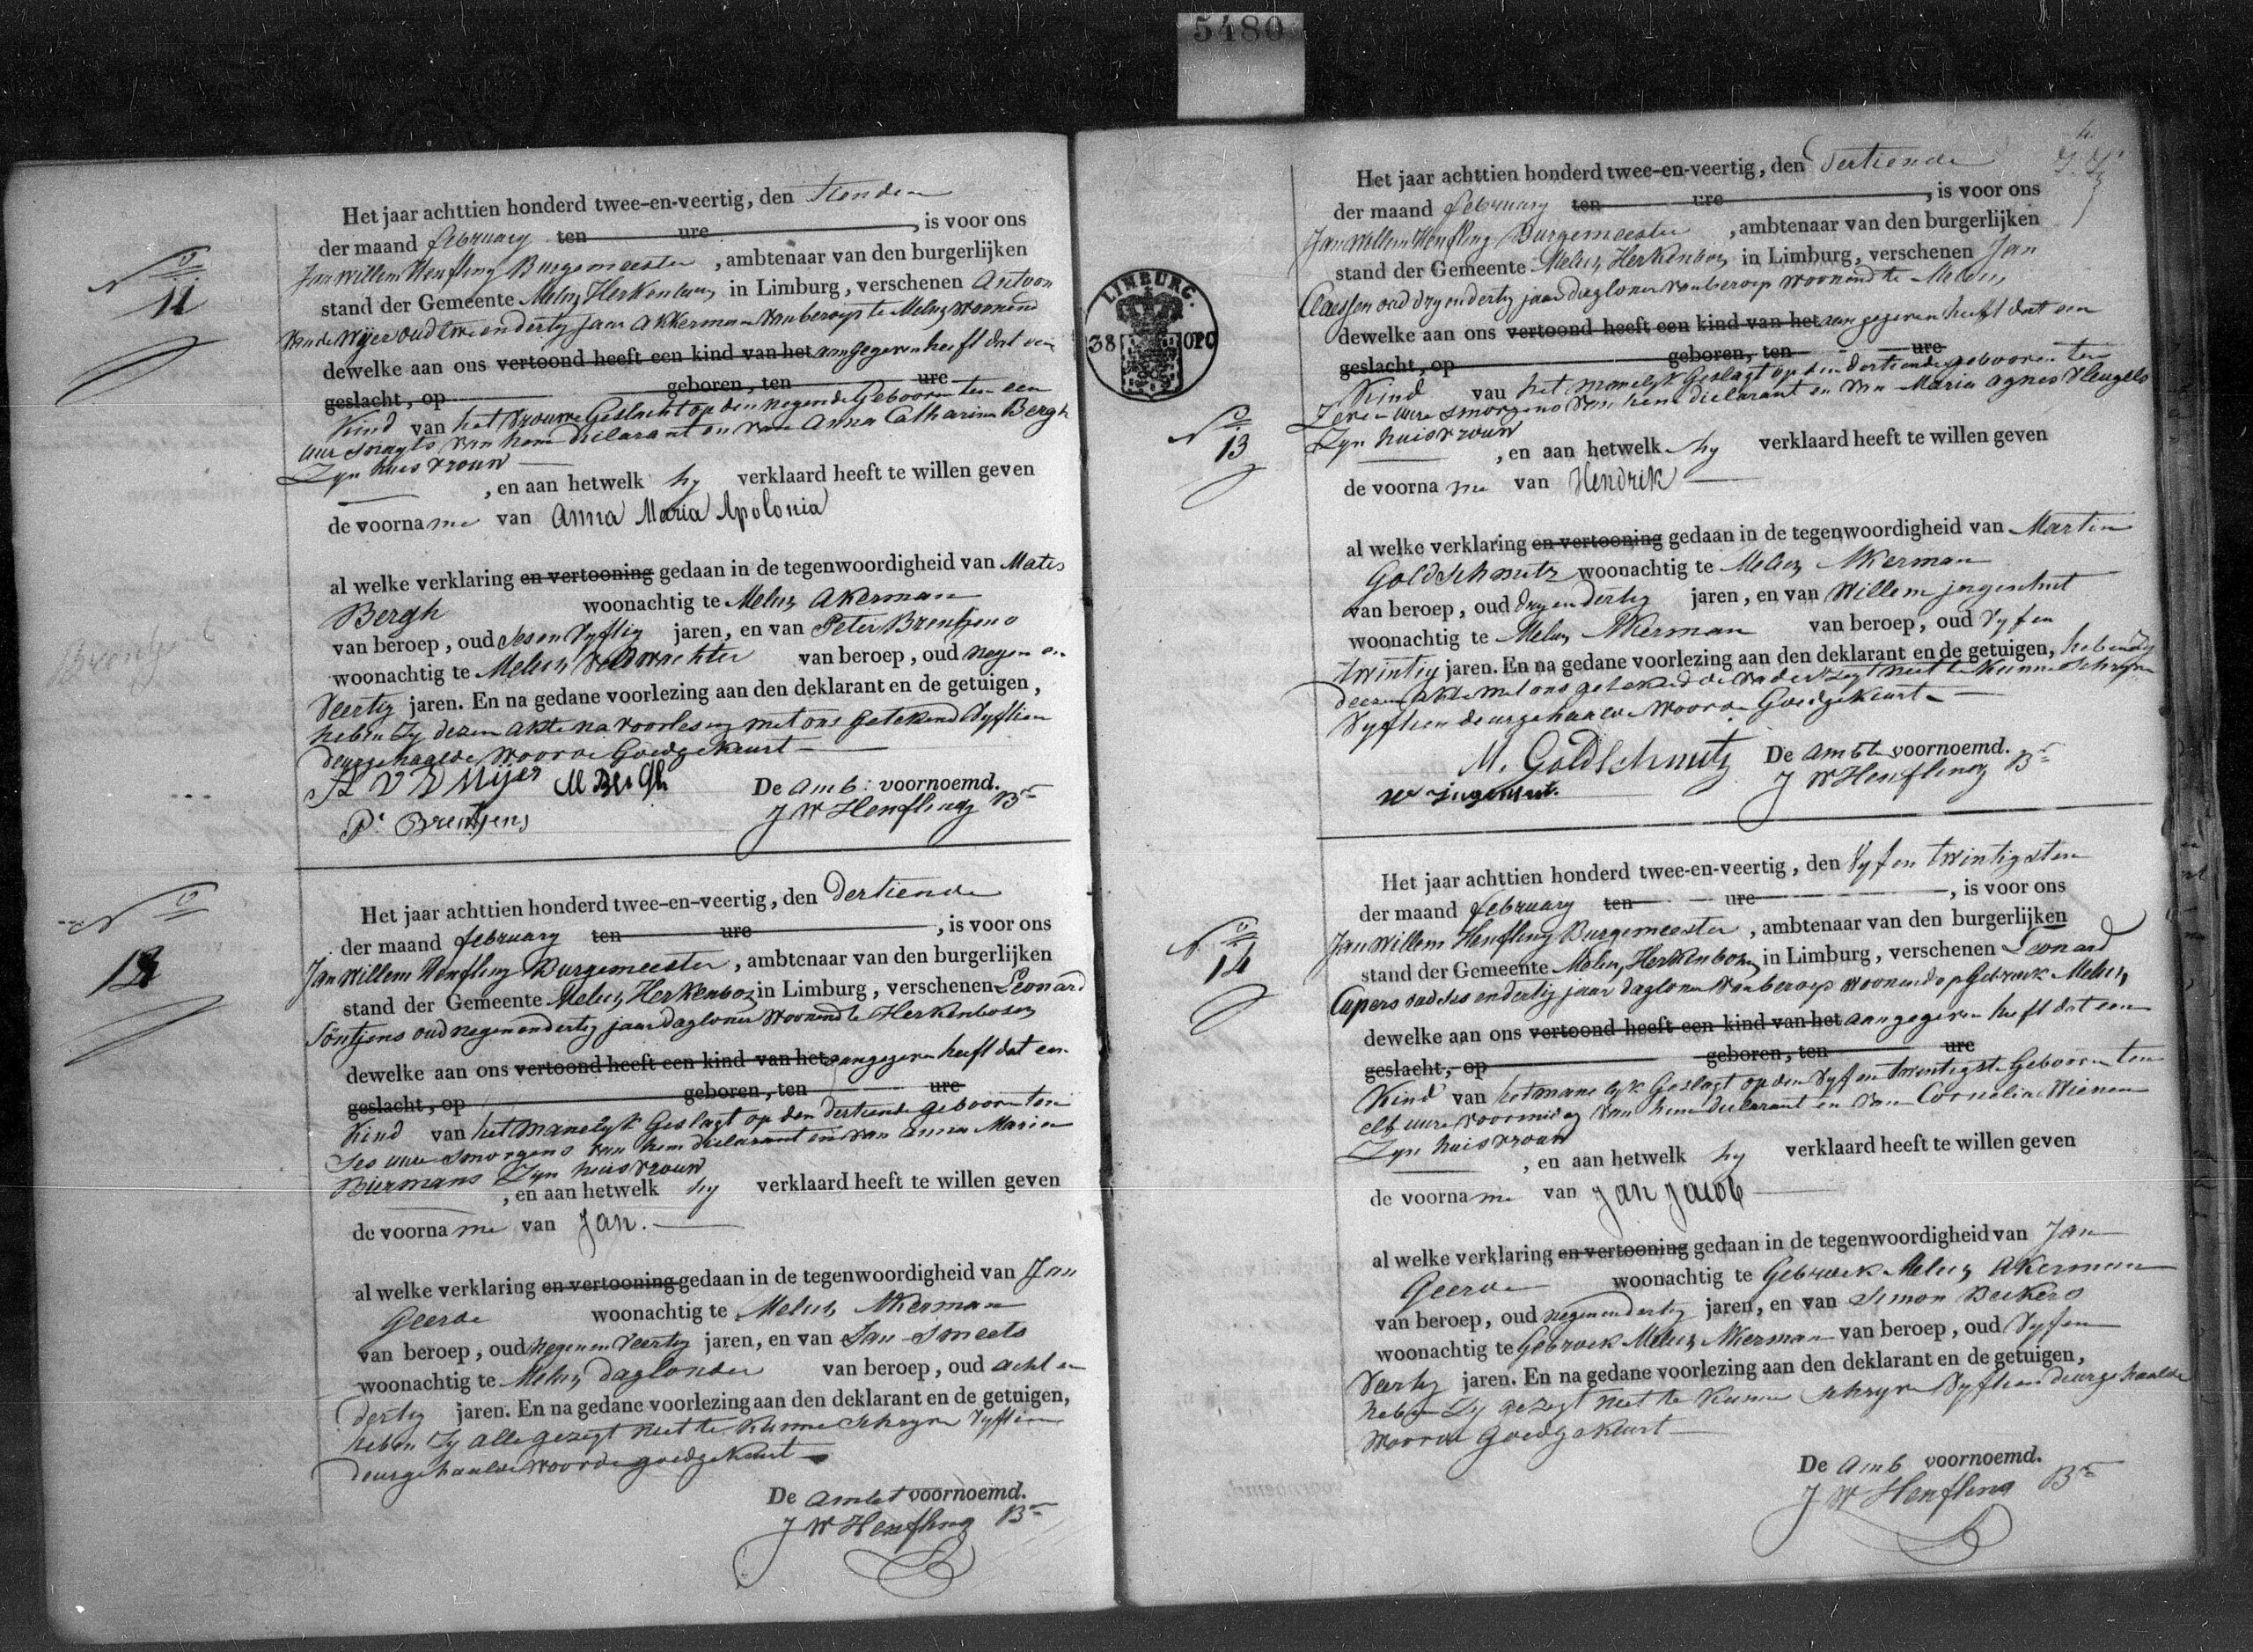 5480
Het jaar achttien honderd twee-en-veertig, den tienden
der maand february ten ure , is voor ons
Jan Willem Henfling Burgemeester , ambtenaar van den burgerlijken
stand der Gemeente Melick Herkenbosch in Limburg, verschenen Antoon
van de Wyer oud twe en dertig jaar akkerman van beroep te Melick woonend
dewelke aan ons vertoond heeft een kind van het aangegeven heeft dat een
geslacht, op geboren, ten ure
Kind van het vrouwe Geslacht op den negende Gebooren ten een
uur snagts van hem declarant en van Anna Catharina Bergh
Zyn huisvrouw
, en aan hetwelk hy verklaard heeft te willen geven
de voorname van Anna Maria Apolonia
al welke verklaring en vertooning gedaan in de tegenwoordigheid van Mates
Bergh woonachtig te Melick Akerman
van beroep, oud ses en vyftig jaren, en van Peter Brentjens
woonachtig te Melick Veldwachter van beroep, oud negen en
Veertig jaren. En na gedane voorlezing aan den deklarant en de getuigen,
heben Zy dezen akte na voorlesing met ons getekend Vyftien
deurgehaalde woorde Goedgekeurt
A V D Wijer M Bergh De Amb: voornoemd.
P. Brentjens J W Henfling Br
No 11
Het jaar achttien honderd twee-en-veertig, den Dertiende
der maand february ten ure , is voor ons
Jan Willem Henfling Burgemeester , ambtenaar van den burgerlijken
stand der Gemeente Melick Herkenbosch in Limburg, verschenen Leonard
Söntjens oud negen en dertig jaar dagloner woonend te Herkenbosch
dewelke aan ons vertoond heeft een kind van het aangegeven heeft dat een
geslacht, op geboren, ten ure
Kind van het manelyk Geslagt op den dertiende gebooren ten
ses uure smorgens van hem declarant en van Anna Maria
Biermans Zyn huisvrouw
, en aan hetwelk hy verklaard heeft te willen geven
de voorname van Jan.
al welke verklaring en vertooning gedaan in de tegenwoordigheid van Jan
Geerde woonachtig te Melick Akerman
van beroep, oud negen en Veertig jaren, en van Jan Smeets
woonachtig te Melick daglonder van beroep, oud acht en
dertig jaren. En na gedane voorlezing aan den deklarant en de getuigen,
heben Zy alle gezegt niet te kunne schryve Vyftien
deurgehaalde woorde goedgekeurt
De Ambt voornoemd.
J W Henfling Br
No 12
Het jaar achttien honderd twee-en-veertig, den Dertiende
der maand february ten ure , is voor ons
Jan Willem Henfling Burgemeester , ambtenaar van den burgerlijken
stand der Gemeente Melick Herkenbosch in Limburg, verschenen Jan
Claessen oud dry en dertig jaar dagloner van beroep woonend te Melick
dewelke aan ons vertoond heeft een kind van het aangegeven heeft dat een
geslacht, op geboren, ten ure
Kind van het manelyk Geslagt op den dertiende gebooren ten
Zeven uure smorgens van hem declarant en van Maria Agnes Vleugels
Zyn huisvrouw
, en aan hetwelk hy verklaard heeft te willen geven
de voorname van Hendrik
al welke verklaring en vertooning gedaan in de tegenwoordigheid van Martin
Goldschmitz woonachtig te Melick Akerman
van beroep, oud dry en dertig jaren, en van Willem jngenhut
woonachtig te Melick Akerman van beroep, oud Vyf en
twintig jaren. En na gedane voorlezing aan den deklarant en de getuigen, heben Zy
dezen akte met ons getekend de vader zegt niet te kunne schryve
Vyftien deurgehaalde woorde Goedgekeurt
M. Goldschmitz De Ambt voornoemd.
J W Henfling Br
LIMBURG.
38 OPC
No 13
Het jaar achttien honderd twee-en-veertig, den Vyf en twintigsten
der maand february ten ure , is voor ons
Jan Willem Henfling Burgemeester , ambtenaar van den burgerlijken
stand der Gemeente Melick Herkenbosch in Limburg, verschenen Leonard
Cupers oud ses en dertig jaar dagloner van beroep woonend op Gebroek Melick
dewelke aan ons vertoond heeft een kind van het aangegeven heeft dat een
geslacht, op geboren, ten ure
Kind van het manelyk Geslagt op den Vyf en twintigste Gebooren ten
elf uure voormidag van hem declarant en van Cornelia Wienen
Zyn huisvrouw
, en aan hetwelk hy verklaard heeft te willen geven
de voorname van Jan Jacob
al welke verklaring en vertooning gedaan in de tegenwoordigheid van Jan
Geerde woonachtig te Gebroek Melick Akerman
van beroep, oud negen en dertig jaren, en van Simon Beckers
woonachtig te Gebroek Melick Akerman van beroep, oud Vyf en
Veertig jaren. En na gedane voorlezing aan den deklarant en de getuigen,
heben Zy gezegt niet te kunne schryve Vyftien deurgehaalde
woorde Goedgekeurt
De Amb voornoemd.
J W Henfling Br
No 14